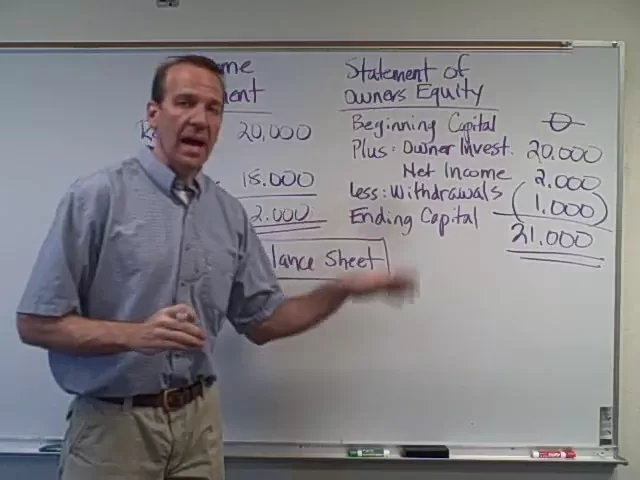 me
ent
20,000
18.000
2.000
lance Sheet
Statement of
Owners Equity
Beginning Capital 0
Plus: Owner Invest. 20.000
Net Income 2.000
Less: Withdrawals (1.000)
Ending Capital 21.000